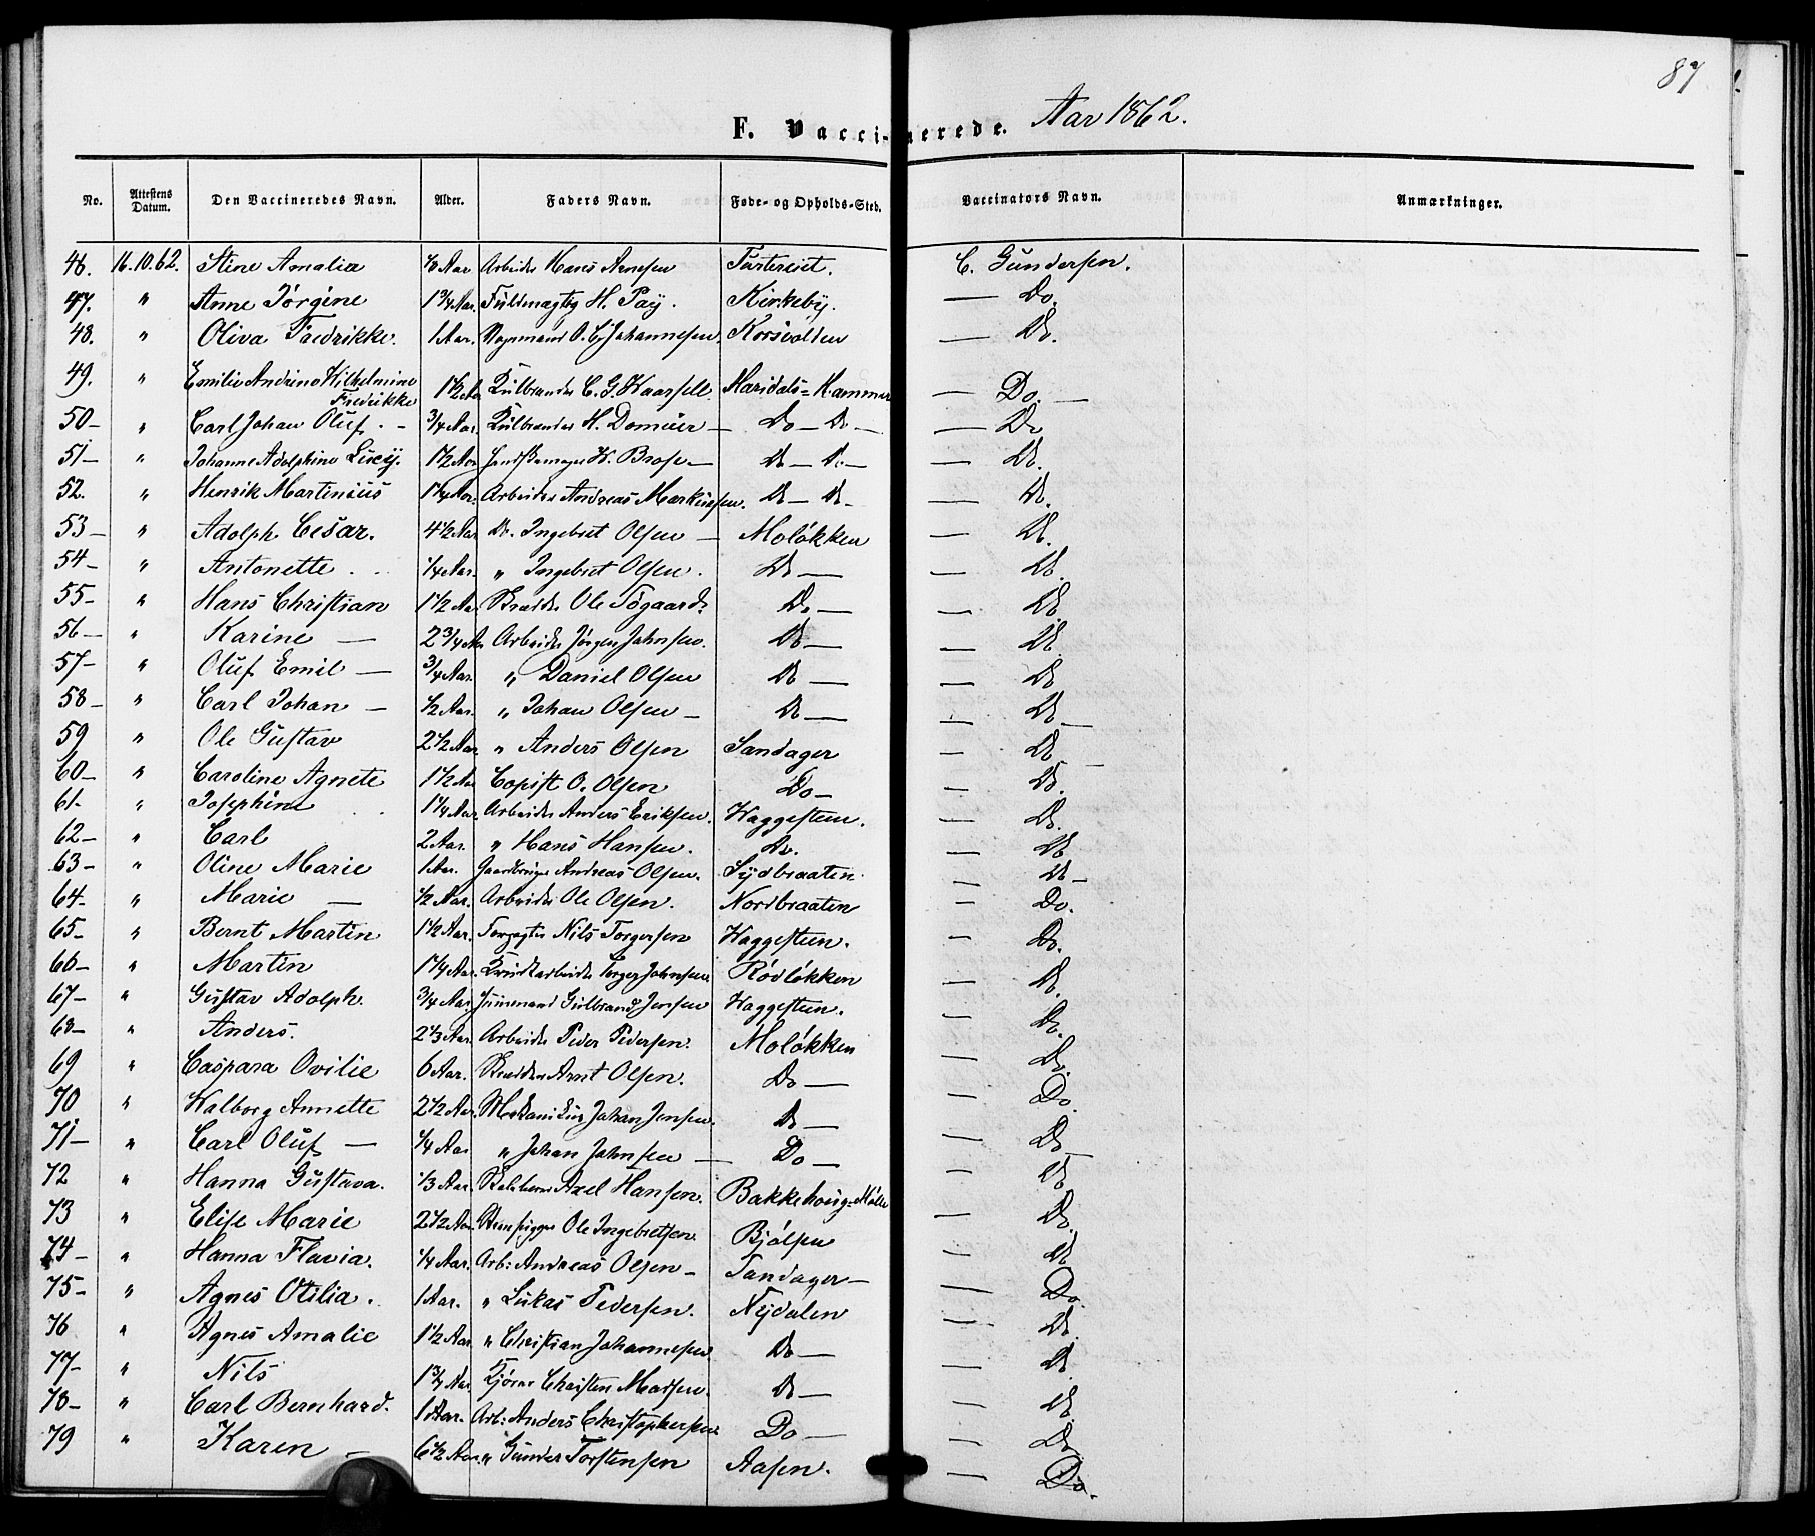 87
F. Vaccinerede. Aar 1862.
No. Attestens Datum. Den Vaccineredes Navn. Alder. Faders Navn. Føde- og Opholds-Sted. Vaccinators Navn. Anmærkninger.
46. 16.10.62. Stine Amalia Aar Arbeider Hans Arnesen C. Gundersen.
47. " Anne Jørgine 1 3/4 Aar. Fuldmægtig H. Paÿ. Kirkebÿ. — Do.
48. " Oliva Fredrikke. 1 Aar. O. C. Johannesen. Korsvolden — Do.
49. " Emilie Andrine Wilhelmine Fredrikke 1 1/2 Aar C. G. Maridals=Hammer — Do. —
50 — " Carl Johan Oluf. - 3/4 Aar H. — Do — Do — — Do
51 — " Johanne Adolphine Lucÿ. 1 1/2 Aar H. — Do — Do — — Do.
52. " Henrik Martinius 1 1/4 Aar. Arbeider Andreas Markussen. Do — Do - — Do.
53 — " Adolph Cesar. 4 1/2 Aar Do. Ingebret Olsen — Moløkken — Do.
54 - " Antonette. 1/4 Aar. " Ingebret Olsen. Do — — Do.
55 - " Hans Christian 1 1/2 Aar Ole Do — — Do.
56 — " Karine — 2 3/4 Aar Arbeider Jørgen Johnsen. Do — — Do.
57 - " Oluf Emil — 3/4 Aar. " Daniel Olsen Do — — Do
58 - " Carl Johan — 1/2 Aar. " Johan Olsen — Do — — Do —
59 " Ole Gustav 2 1/2 Aar " Anders Olsen Sandager — Do
60 - " Caroline Agnete 1 1/2 Aar Copist O. Olsen Do — — Do.
61. " Josephine 1 1/4 Aar. Arbeider Anders Eriksen. Haggesteen. — Do.
62 — " Carl 2 Aar. " Hans Hansen. Do. — Do
63 - " Oline Marie 1 Aar. Gaardbruger Andreas Olsen. Sÿdbraaten — Do —
64 - " Marie — 1/2 Aar. Arbeider Ole Olsen. Nordbraaten — Do.
65 - " Bernt Martin 1 1/2 Aar. Nils Torgersen Haggesteen. — Do.
66 - " Martin 1 1/4 Aar. Torger Johnsen Rødløkken — Do.
67 - " Gustav Adolph. 3/4 Aar. Gulbrand Jensen Haggesteen. — Do.
68 - " Anders. 2 1/3 Aar Arbeider Peder Pedersen. Moløkken — Do.
69 " Caspara Ovilie 6 Aar. Arnt Olsen. Do — — Do
70 " Walborg Annette 2 1/2 Aar. Mekanikus Johan Jensen. Do — — Do
71 — " Carl Oluf — 1/4 Aar " Johan Johnsen — Do — — Do
72 " Hanna Gustava. 1/3 Aar. Axel Hansen. Bakkehoug=Mølle — Do.
73 " Elise Marie 2 1/2 Aar. Ole Ingebretsen. Bjølsen — Do
74 — " Hanna Flavia. 1/4 Aar. Arb: Andreas Olsen — Sandager — — Do
75 - " Agnes Otilia. 1 Aar. " Lukas Pedersen. Nÿdalen — Do.
76 " Agnes Amalie 1 1/2 Aar " Christian Johannesen. Do — — Do.
77 - " Nils 1 3/4 Aar. Kjører Christen Madsen. Do — — Do.
78 - " Carl Bernhard. 1 Aar. Arb: Anders Christophersen Do — — Do
79 " Karen — 6 1/2 Aar. " Gunder Torstensen Aasen. — Do.